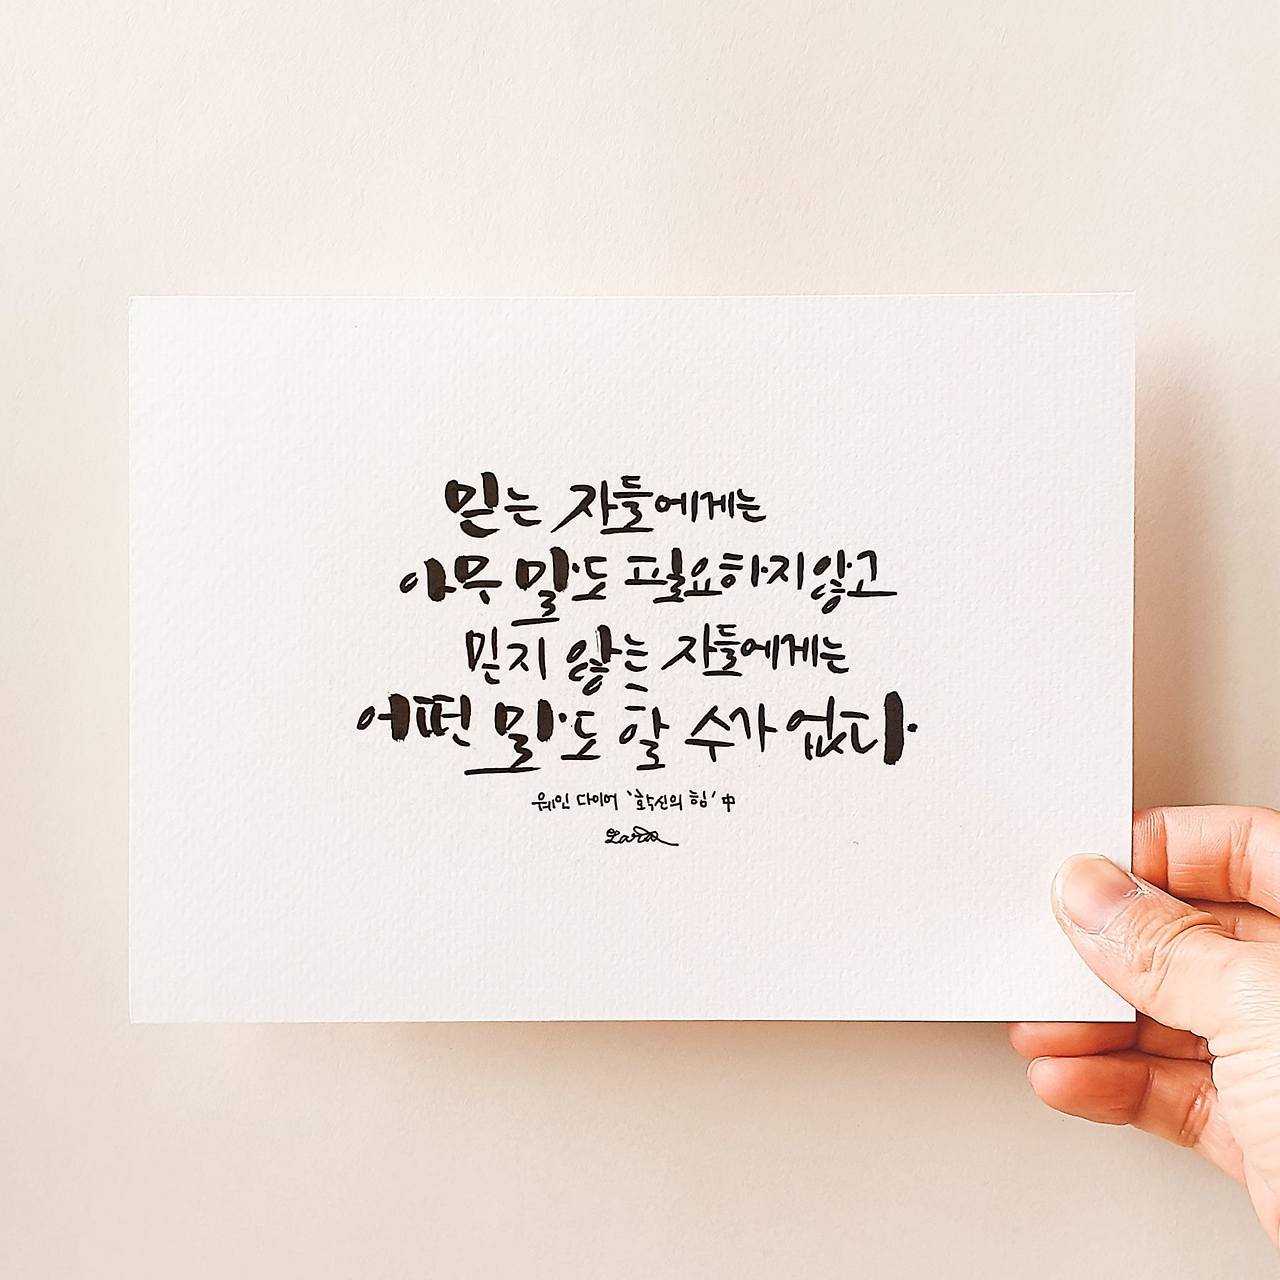 믿는 자들에게는
아무 말도 필요하지 않고
믿지 않는 자들에게는
어떤 말도 할 수가 없다.
웨인 다이어 '확신의 힘' 中